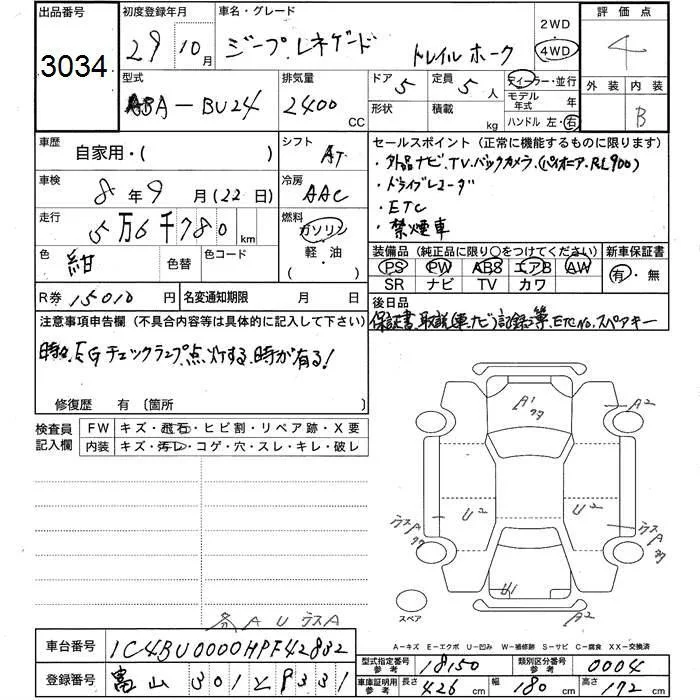 出品番号 3034
初度登録年月 29 10月
車名・グレード ジープ レネゲード トレイルホーク
2WD 4WD
評価点 4
外装 内装 B
型式 ABA-BU24
排気量 2400 CC
ドア 5 定員 5人
形状 積載 kg
ディーラー・並行
モデル年式 年
ハンドル 左・右
車歴 自家用・( )
シフト AT
車検 8年9月(22日)
冷房 AAC
走行 5万6千780km
燃料 ガソリン 軽・油 ( )
色 紺 色替 色コード
R券 15010円 名変通知期限 月 日
セールスポイント (正常に機能するものに限ります)
・外品ナビ.TV.バックカメラ.(パイオニア.RL900)
・ドライブレコーダ
・ETC
・禁煙車
装備品 (純正品に限り○をつけてください) 新車保証書
PS PW ABS エアB AW 有・無
SR ナビ TV カワ
後日品
保証書.取説(車.ナビ)記録簿.ETCNo.スペアキー
注意事項申告欄 (不具合内容等は具体的に記入して下さい)
時々.EGチェックランプ点灯する.時が有る!
修復歴 有 〔箇所 〕
検査員記入欄
FW キズ・飛石・ヒビ割・リペア跡・X要
内装 キズ・汚レ・コゲ・穴・スレ・キレ・破レ
A1
A2
U2
U2
ウスA
ウスA
U1
A2
スペア
A U ウスA
A-キズ E-エクボ U-凹み W-補修跡 S-サビ C-腐食 XX-交換済
車台番号 1C4BU0000HPF42832
登録番号 富山 301 と 9331
型式指定番号 参考 18150 類別区分番号 参考 0004
車庫証明用 参考 長さ 426cm 幅 180cm 高さ 172cm